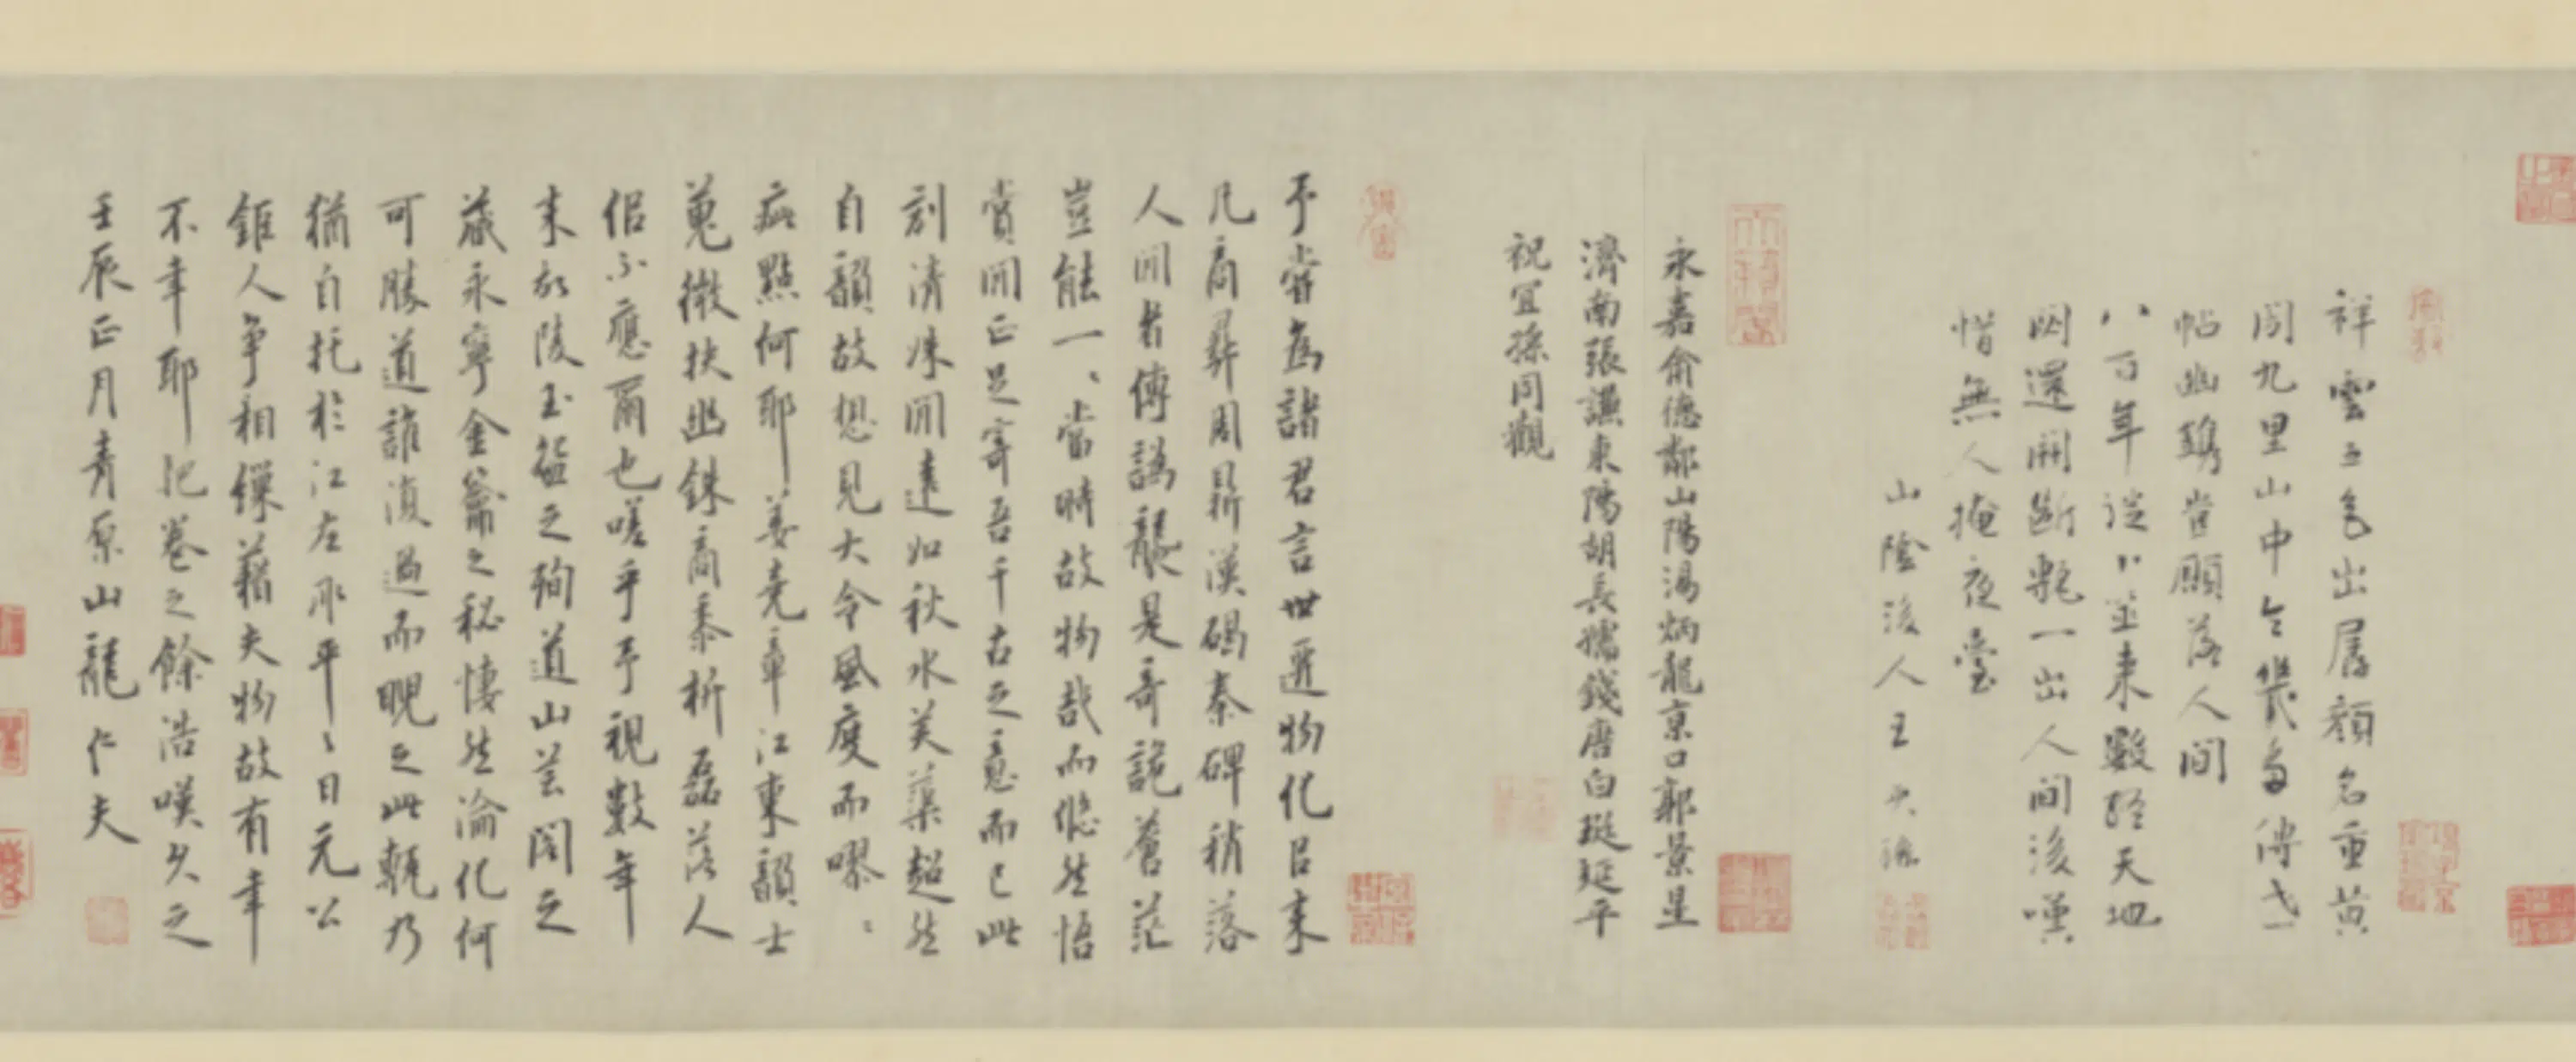 祥雲五色出孱顏名重黃
閣九里山中今幾多傳世
帖幽鐫豈願落人間
八百年從八並來數終天地
閟還開斷甎一出人間後嘆
惜無人掩夜臺
山陰後人王英孫
永嘉俞德鄰山陽湯炳龍京口郭景星
濟南張謙東陽胡長孺錢唐白珽延平
祝宜孫同觀
予嘗為諸君言世遷物化呂来
凡商彝周鼎漢碣秦碑稍落
人間者傳譌襲是奇詭蒼茫
豈能一〻當時故物哉而悠然悟
賞間正足寄吾千古之意而已此
刻清姝閒遠如秋水芙蕖超然
自韻故想見大令風度而嘐〻
疵點何耶姜堯章江東韻士
蒐微抉幽銖商黍析磊落人
侶不應爾也嗟乎予視數年
来如陵玉盌之殉道山芸閣之
藏永寧金籥之秘悽然淪化何
可勝道誰復過而睨之此甎乃
猶自托於江左承平〻日元公
鉅人爭相鏁藉夫物故有幸
不幸耶把卷之餘浩嘆久之
壬辰正月青原山龍仁夫